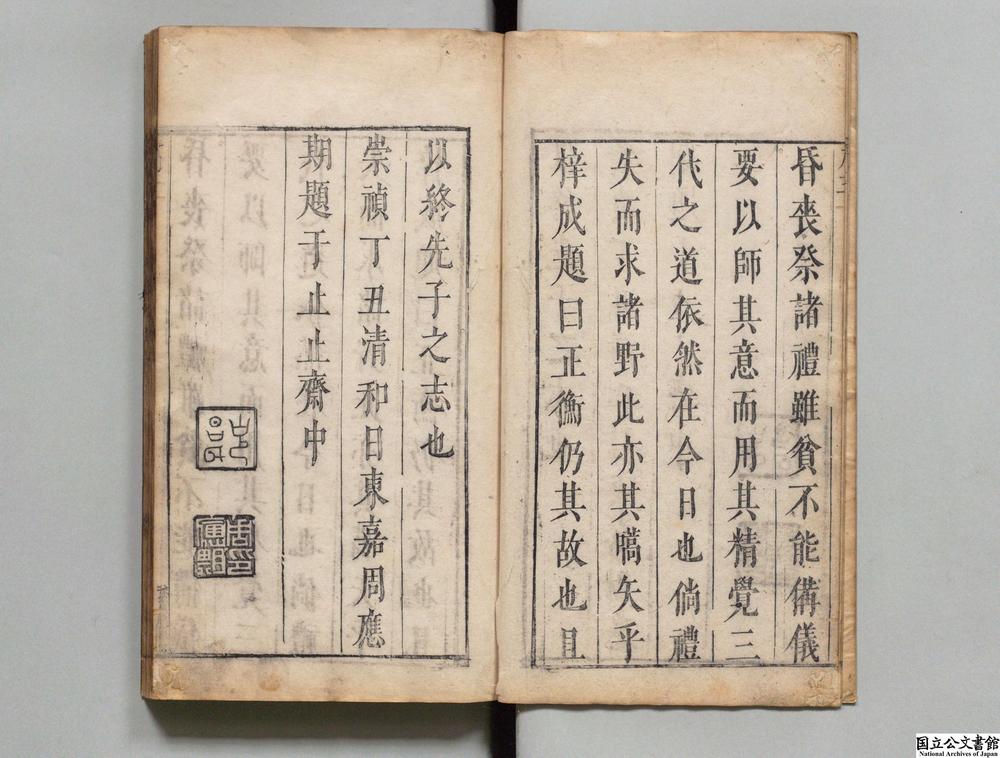 昏喪祭諸禮雖貧不能備儀
要以師其意而用其精覺三
代之道依然在今日也倘禮
失而求諸野此亦其嚆矢乎
梓成題曰正衡仍其故也且
以終先子之志也
崇禎丁丑清和日東嘉周應
期題于止止齋中
国立公文書館
National Archives of Japan